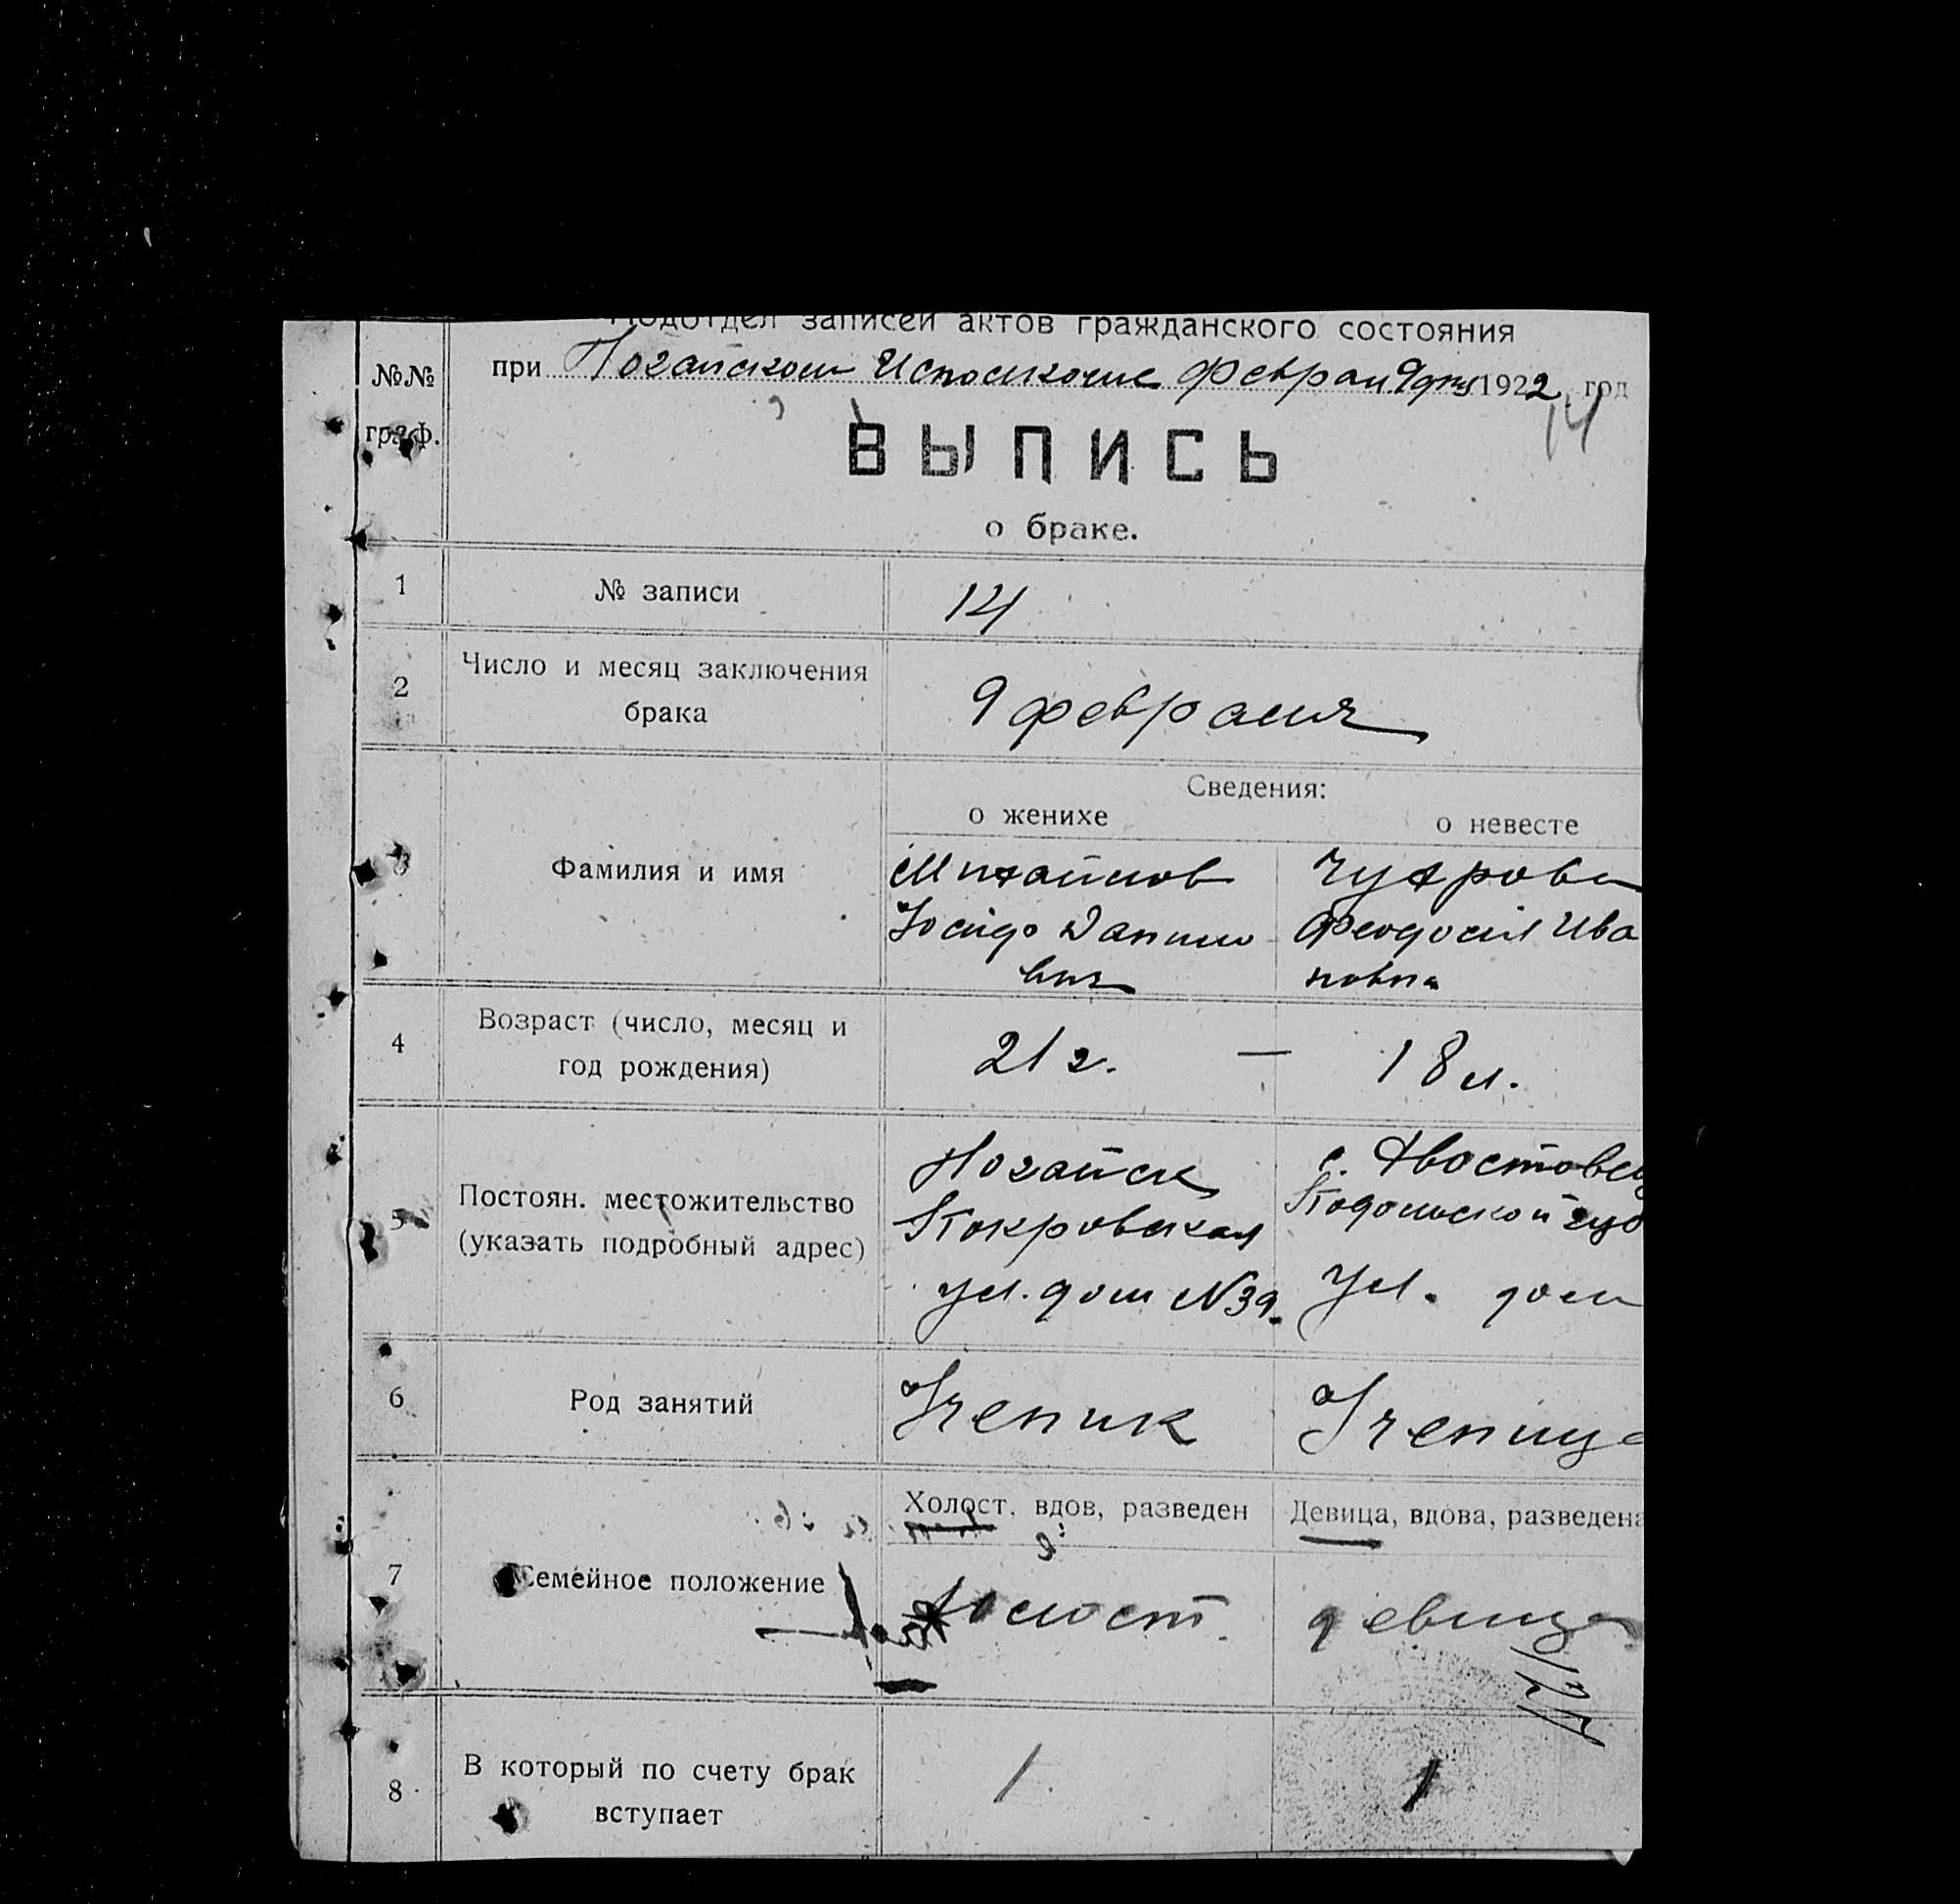 Подотдел записей актов гражданского состояния
№№ граф.
при Ногайском Исполкоме Феврал 9 дня 1922 год
14
ВЫПИСЬ
о браке.
1 № записи 14
2 Число и месяц заключения брака 9 февраля
Сведения:
о женихе о невесте
3 Фамилия и имя
Михайлов Чухрова
Иосиф Данило Феодосия Ива
вич новна
4 Возраст (число, месяц и год рождения) 21 г. — 18 л.
5 Постоян. местожительство
(указать подробный адрес)
Ногайск с. Хвостовец
Покровская Подольской губ
ул. дом N39. Ул. дом
6 Род занятий Ученик Ученица
Холост, вдов, разведен Девица, вдова, разведена
7 Семейное положение холост. девица
8 В который по счету брак
вступает 1 1